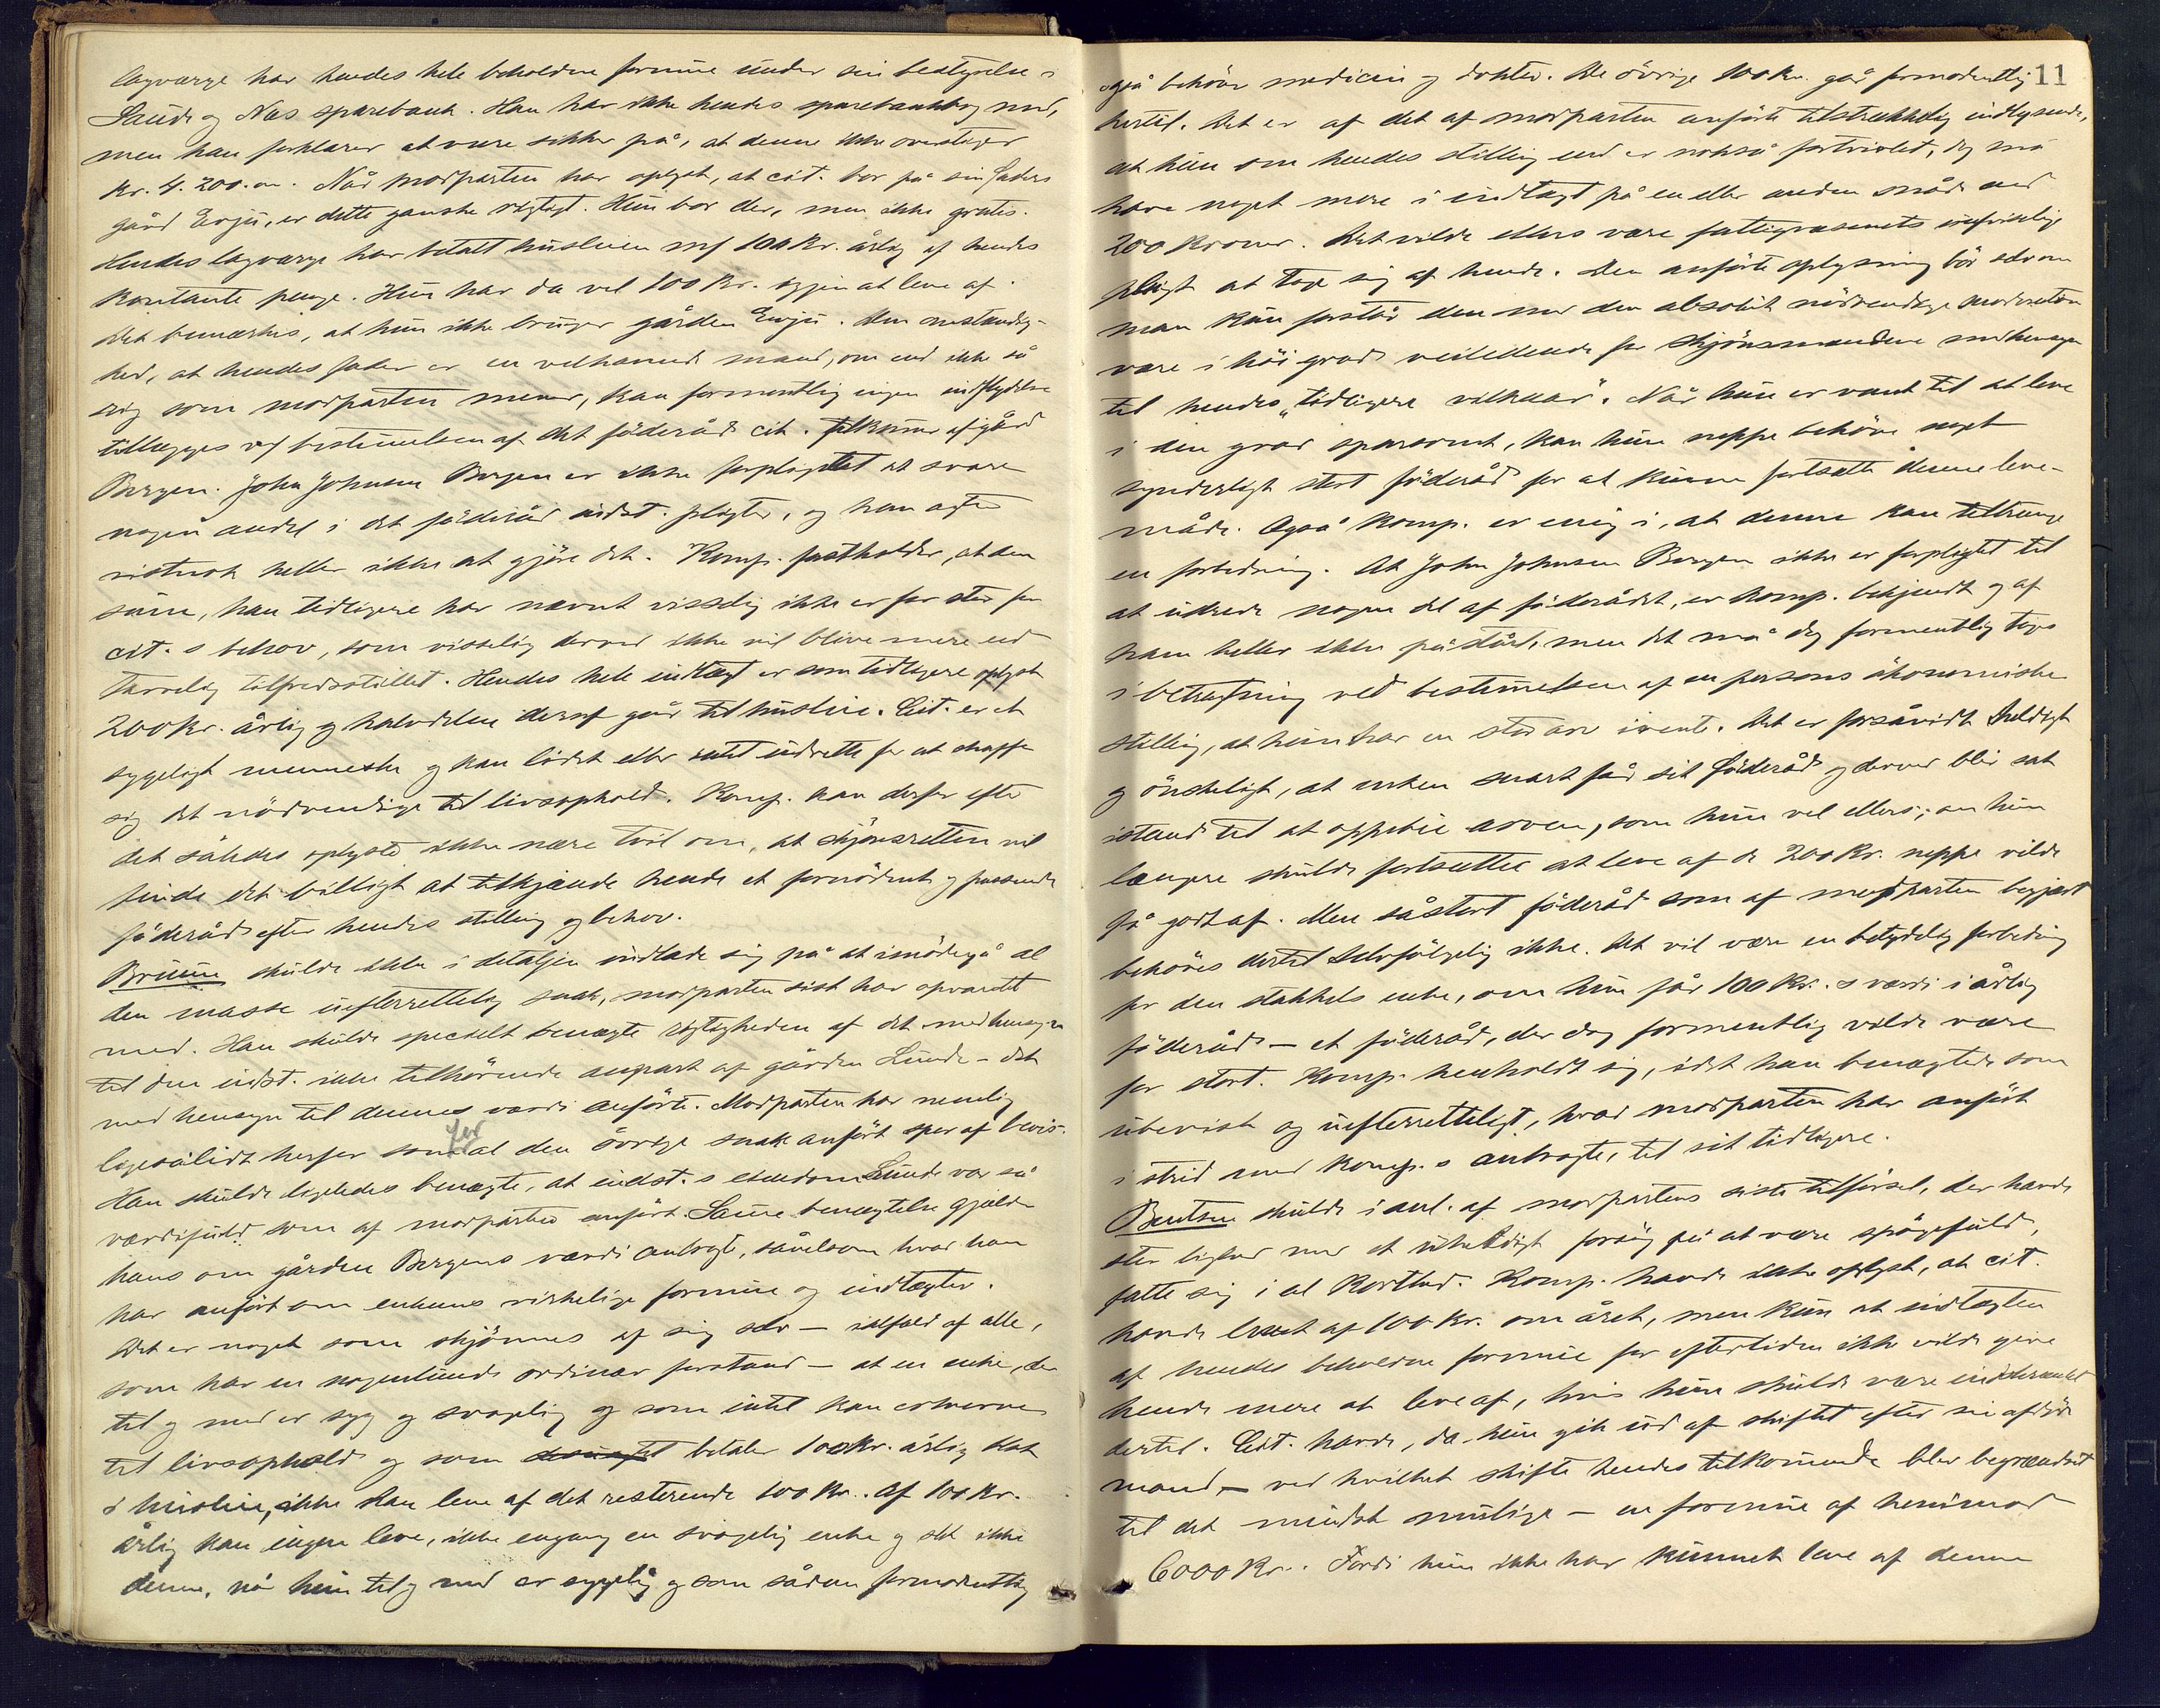 lagværge har hendes hele beholdne formue under sin bestyrelse i
Saude og Nes sparebank. Han har ikke hendes sparebankbog med,
men han forklarer at være sikker på, at denne ikke overstiger
kr. 4.200.00. Når modparten har oplyst, at cit. bor på sin faders
gård Evju, er dette ganske rigtigt. Hun bor der, men ikke gratis.
Hendes lagværge har betalt husleien m/ 100 kr. årlig af hendes
kontante penge. Hun har da vel 100 kr. igjen at leve af.
Det bemærkes, at hun ikke bruger gården Evju. Den omstændig-
hed, at hendes fader er en velhavende mand, om end ikke så
rig som modparten mener, kan formentlig ingen indflydelse
tillægges v/ bestemmelsen af det föderåd cit. tilkommer af gård
Bergen. John Johnsen Bergen er ikke forpligtet at svare
nogen andel i det föderåd indst. pligter, og han agter
nistnok heller ikke at gjöre det. Komp. fastholder, at den
sum, han tidligere har nævnt visselig ikke er for stor for
cit.s behov, som visselig derved ikke vil blive mere end
tarvelig tilfredsstillet. Hendes hele indtægt er som tidligere oplyst
200 kr. årlig og halvdelen deraf går til husleie. Cit. er et
sygeligt menneske og kan lidet eller intet udrette for at skaffe
sig det nödvendige til livsophold. Komp. kan derfor efter
det således oplyste ikke være tvil om, at skjönsretten vil
finde det billigt at tilkjende hende et fornödent og passende
föderåd efter hendes stilling og behov.
Bruun skulde ikke i detaljen indlade sig på at imödegå al
den masse uefterrettelig snak, modparten sist har opvartet
med. Han skulde specielt benægte rigtigheden af det med hensyn
til den indst. ikke tilhörende anpart af gården Lunde – det
med hensyn til dennes værdi anförte. Modparten har nemlig
ligesålidt herfor som for al den övrige snak anfört spor af bevis.
Han skulde ligeledes benægte, at indst.s eiendom Lunde var så
værdifuld som af modparten anfört. Samme benægtelse gjælder
hans om gården Bergens værdi anbragte, såvelsom hvad han
har anfört om enkens virkelige formue og indtægter.
Det er noget som skjönnes af sig selv – ialfald af alle,
som har en nogenlunde ordinær forstand – at en enke, der
til og med er syg og svagelig og som intet kan erhverve
til livsophold og som betaler 100 kr. årlig
i husleie, ikke kan leve af det resterende 100 kr. Af 100 kr.
årlig kan ingen leve, ikke engang en svagelig enke og slet ikke
denne, når hun til og med er sygelig og som sådan formodentlig
11
også behöver medicin og doktor. De övrige 100 kr. går formodentlig
hertil. Det er af det af modparten anförte tilstrækkelig indlysende,
at hun om hendes stilling end er nokså fortvivlet, dog må
have noget mere i indtægt på en eller anden måde end
200 kroner. Det vilde ellers være fattigvæsenets uafviselige
pligt at tage sig af hende. Den anförte oplysning bör selv om
man kun forstår den med den absolut nödvendige moderation
være i höi grad veiledende for skjönsmændene med hensyn
til hendes "tidligere vilkaar". Når hun er vant til at leve
i den grad sparsomt, kan hun neppe behöve noget
synderligt stort föderåd for at kunne fortsætte denne leve-
måde. Også komp. er enig i, at denne kan tiltrænge
en forbedring. At John Johnsen Bergen ikke er forpligtet til
at udrede nogen del af föderådet, er komp. bekjendt og af
ham heller ikke påstået, men det må dog formentlig tages
i betragtning ved bestemmelsen af en persons ökonomiske
stilling, at hun har en stor arv ivente. Det er forsåvidt heldigt
og önskeligt, at enken snart får sit föderåd og derved blir sat
istand til at oppebie arven, som hun vel ellers, om hun
længere skulde fortsætte at leve af de 200 kr. neppe vilde
få godt af. Men såstort föderåd som af modparten begjært
behöves dertil selvfölgelig ikke. Det vil være en betydelig forbedring
for den stakkels enke, om hun får 100 kr.s værdi i årlig
föderåd – et föderåd, der dog formentlig vilde være
for stort. Komp. henholdt sig, idet han benægtede som
ubevist og uefterretteligt, hvad modparten har anfört
i strid med komp.s anbragte, til sit tidligere.
Bentsen skulde i anl. af modpartens siste tilförsel, der havde
stor lighed med et uheldigt forsög på at være spögefuld,
fatte sig i al korthed. Komp. havde ikke oplyst, at cit.
havde levet af 100 kr. om året, men kun at indtægten
af hendes beholdne formue for eftertiden ikke vilde give
hende mere at leve af, hvis hun skulde være indskrænket
dertil. Cit. havde, da hun gik ud af skiftet efter sin afdöde
mand – ved hvilket skifte hendes tilkommende blev begrændset
til det mindst mulige – en formue af henimod
6000 kr. Fordi hun ikke har kunnet leve af denne